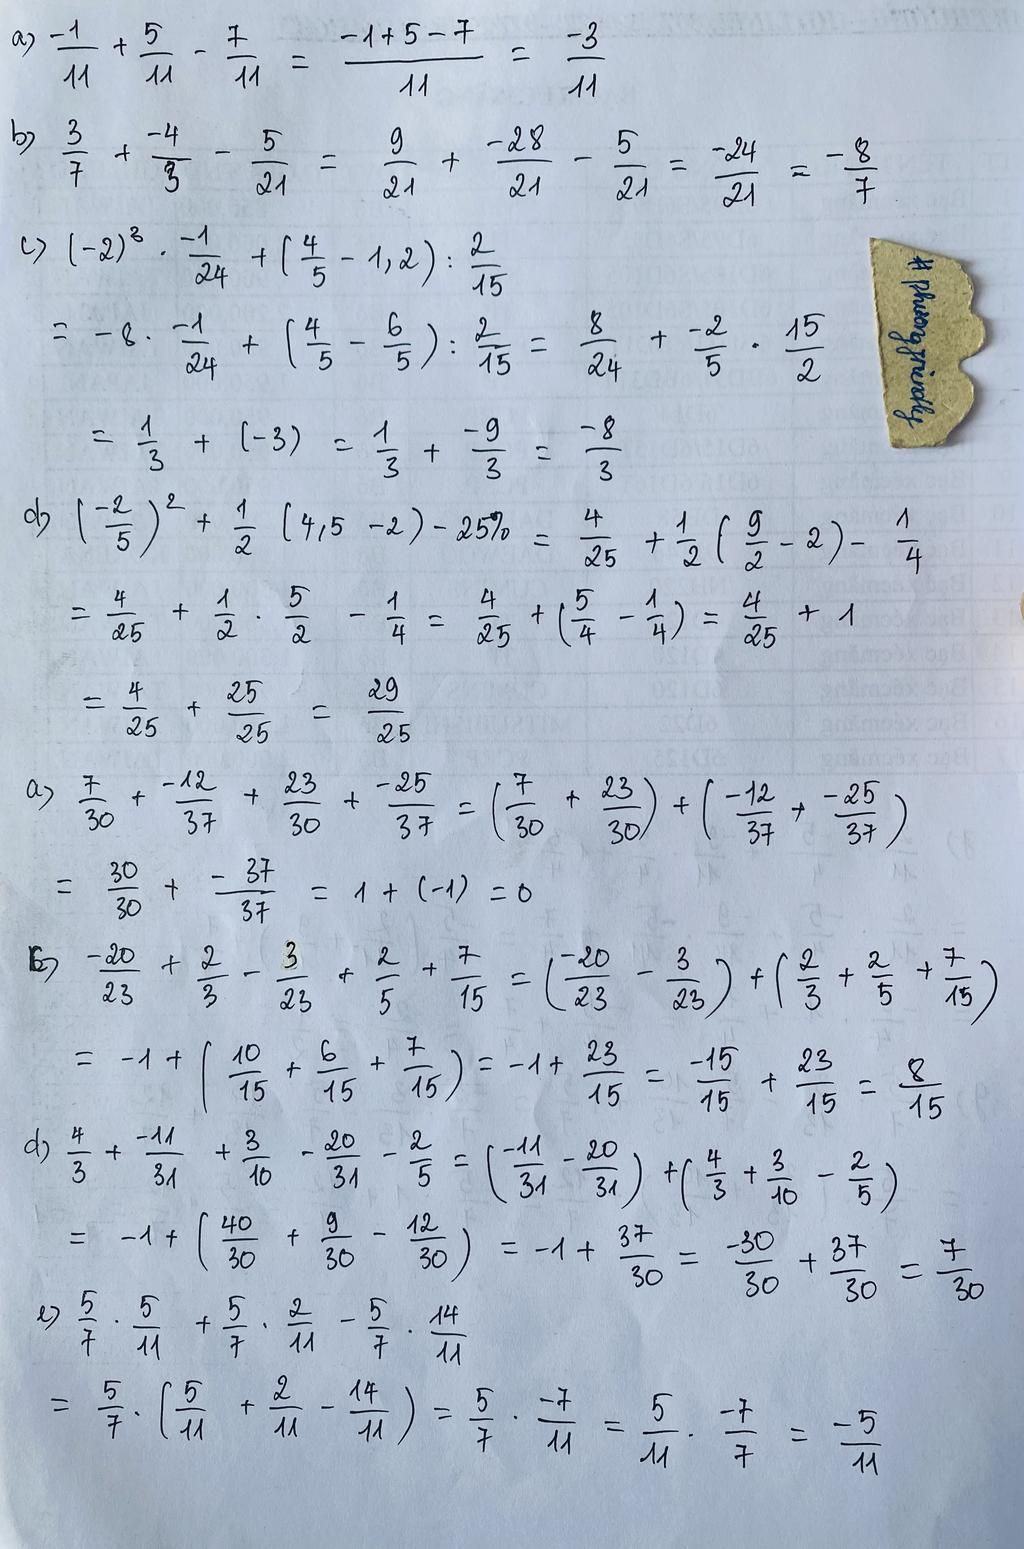 a) -1/11 + 5/11 - 7/11 = (-1+5-7)/11 = -3/11
b) 3/7 + -4/3 - 5/21 = 9/21 + -28/21 - 5/21 = -24/21 = -8/7
c) (-2)³ · -1/24 + (4/5 - 1,2) : 2/15
= -8 · -1/24 + (4/5 - 6/5) : 2/15 = 8/24 + -2/5 · 15/2
= 1/3 + (-3) = 1/3 + -9/3 = -8/3
d) (-2/5)² + 1/2 (4,5 - 2) - 25% = 4/25 + 1/2 (9/2 - 2) - 1/4
= 4/25 + 1/2 · 5/2 - 1/4 = 4/25 + (5/4 - 1/4) = 4/25 + 1
= 4/25 + 25/25 = 29/25
a) 7/30 + -12/37 + 23/30 + -25/37 = (7/30 + 23/30) + (-12/37 + -25/37)
= 30/30 + -37/37 = 1 + (-1) = 0
b) -20/23 + 2/3 - 3/23 + 2/5 + 7/15 = (-20/23 - 3/23) + (2/3 + 2/5 + 7/15)
= -1 + (10/15 + 6/15 + 7/15) = -1 + 23/15 = -15/15 + 23/15 = 8/15
d) 4/3 + -11/31 + 3/10 - 20/31 - 2/5 = (-11/31 - 20/31) + (4/3 + 3/10 - 2/5)
= -1 + (40/30 + 9/30 - 12/30) = -1 + 37/30 = -30/30 + 37/30 = 7/30
e) 5/7 · 5/11 + 5/7 · 2/11 - 5/7 · 14/11
= 5/7 · (5/11 + 2/11 - 14/11) = 5/7 · -7/11 = 5/11 · -7/7 = -5/11